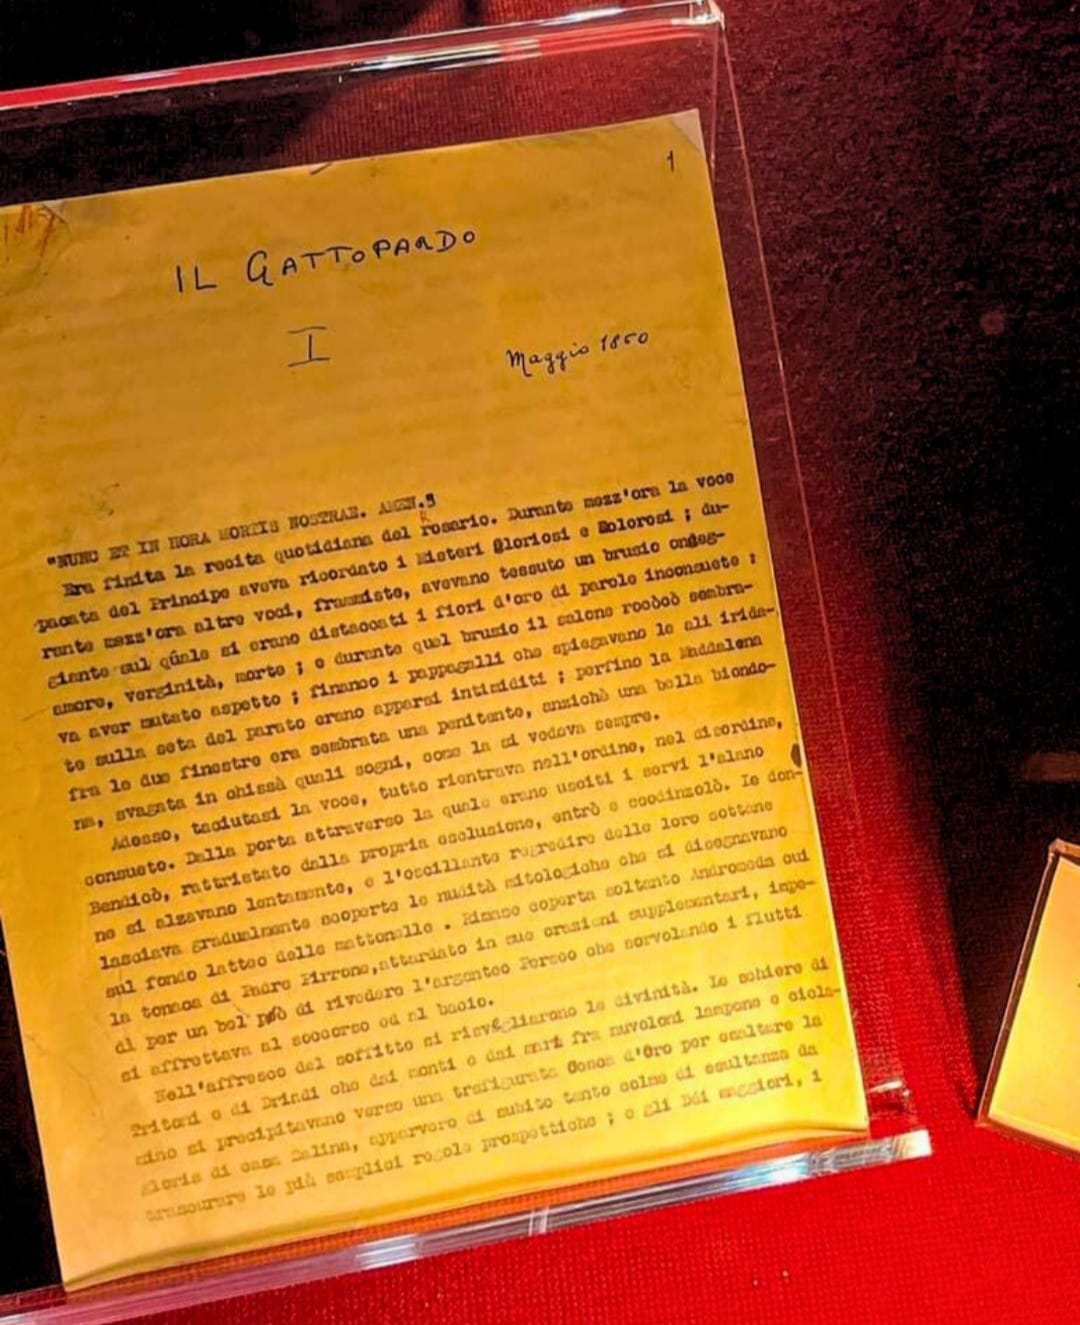 1
IL GATTOPARDO
I
Maggio 1860
"NUNC ET IN HORA MORTIS NOSTRAE. AMEN."
Era finita la recita quotidiana del rosario. Durante mezz'ora la voce
pacata del Principe aveva ricordato i Misteri Gloriosi e Dolorosi ; du-
rante mezz'ora altre voci, frammiste, avevano tessuto un brusio ondeg-
giante sul quale si erano distaccati i fiori d'oro di parole inconsuete :
amore, verginità, morte ; e durante quel brusio il salone rococò sembra-
va aver mutato aspetto ; financo i pappagalli che spiegavano le ali irida-
te sulla seta del parato erano apparsi intimiditi ; perfino la Maddalena
fra le due finestre era sembrata una penitente, anzichè una bella biondo-
na, svagata in chissà quali sogni, come la si vedeva sempre.
Adesso, taciutasi la voce, tutto rientrava nell'ordine, nel disordine,
consueto. Dalla porta attraverso la quale erano usciti i servi l'alano
Bendicò, rattristato dalla propria esclusione, entrò e scodinzolò. Le don-
ne si alzavano lentamente, e l'oscillante regredire delle loro sottane
lasciava gradualmente scoperte le nudità mitologiche che si disegnavano
sul fondo latteo delle mattonelle . Rimase coperta soltanto Andromeda cui
la tonaca di Padre Pirrone,attardato in sue orazioni supplementari, impe-
dì per un bel pò di rivedere l'argenteo Perseo che sorvolando i flutti
si affrettava al soccorso ed al bacio.
Nell'affresco del soffitto si risvegliarono le divinità. Le schiere di
Tritoni e di Driadi che dai monti e dai mari fra nuvoloni lampone e cicla-
mino si precipitavano verso una trasfigurata Conca d'Oro per esaltare la
gloria di casa Salina, apparvero di subito tanto colme di esultanza da
trascurare le più semplici regole prospettiche ; e gli Dèi maggiori, i